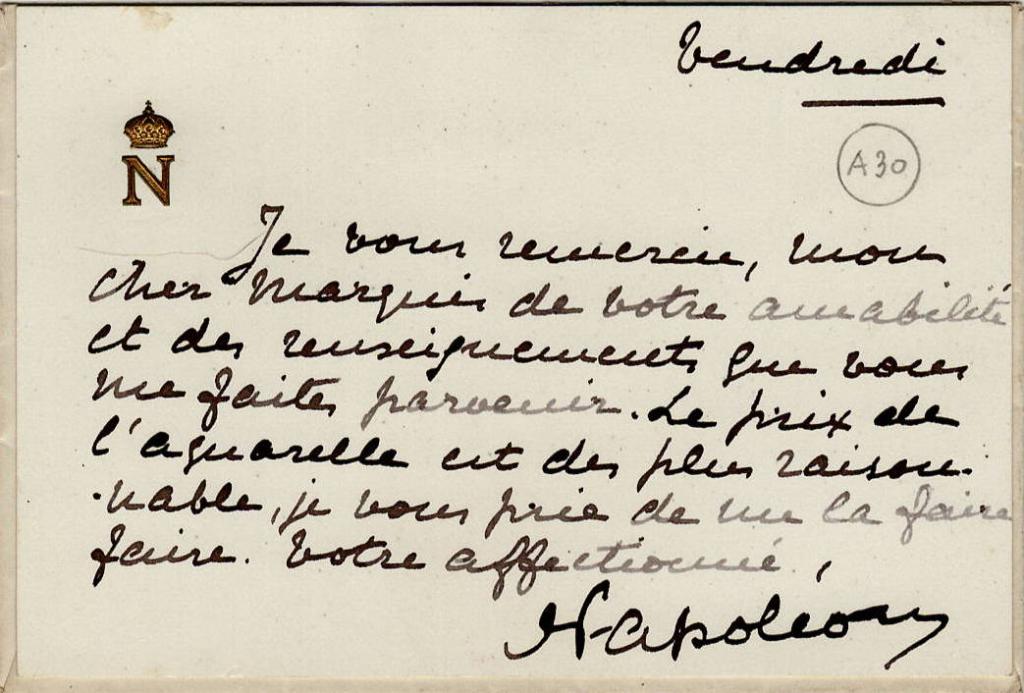 Vendredi
A30
N
Je vous remercie, mon
cher Marquis de votre amabilité
et des renseignements que vous
me faites parvenir. Le prix de
l'aquarelle est des plus raison-
-nable, je vous prie de me la faire
faire. Votre affectionné,
Napoléon